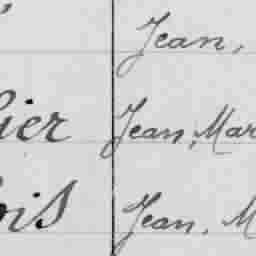 Jean,
ier Jean, Mar
ois Jean. M